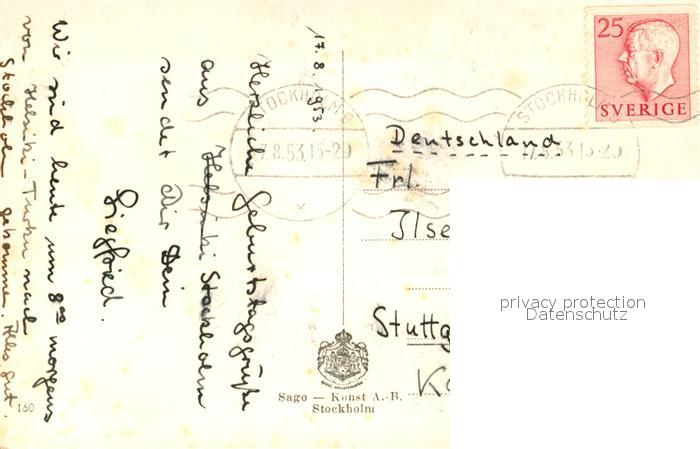 17.8.1953.
Herzliche Geburtstagsgrüße
aus Helsinki Stockholm
sendet Dir Dein
Siegfried.
Wir sind heute um 8.00 morgens
von Helsinki-Turku nach
Stockholm gekommen. Alles gut.
25
SVERIGE
STOCKHOLM 9
17.8.53.15-20
STOCKHOLM
17.8.53.15-20
Deutschland
Frl.
Ilse
Stuttg
privacy protection
Datenschutz
Sago — Konst A.-B.
Stockholm
160